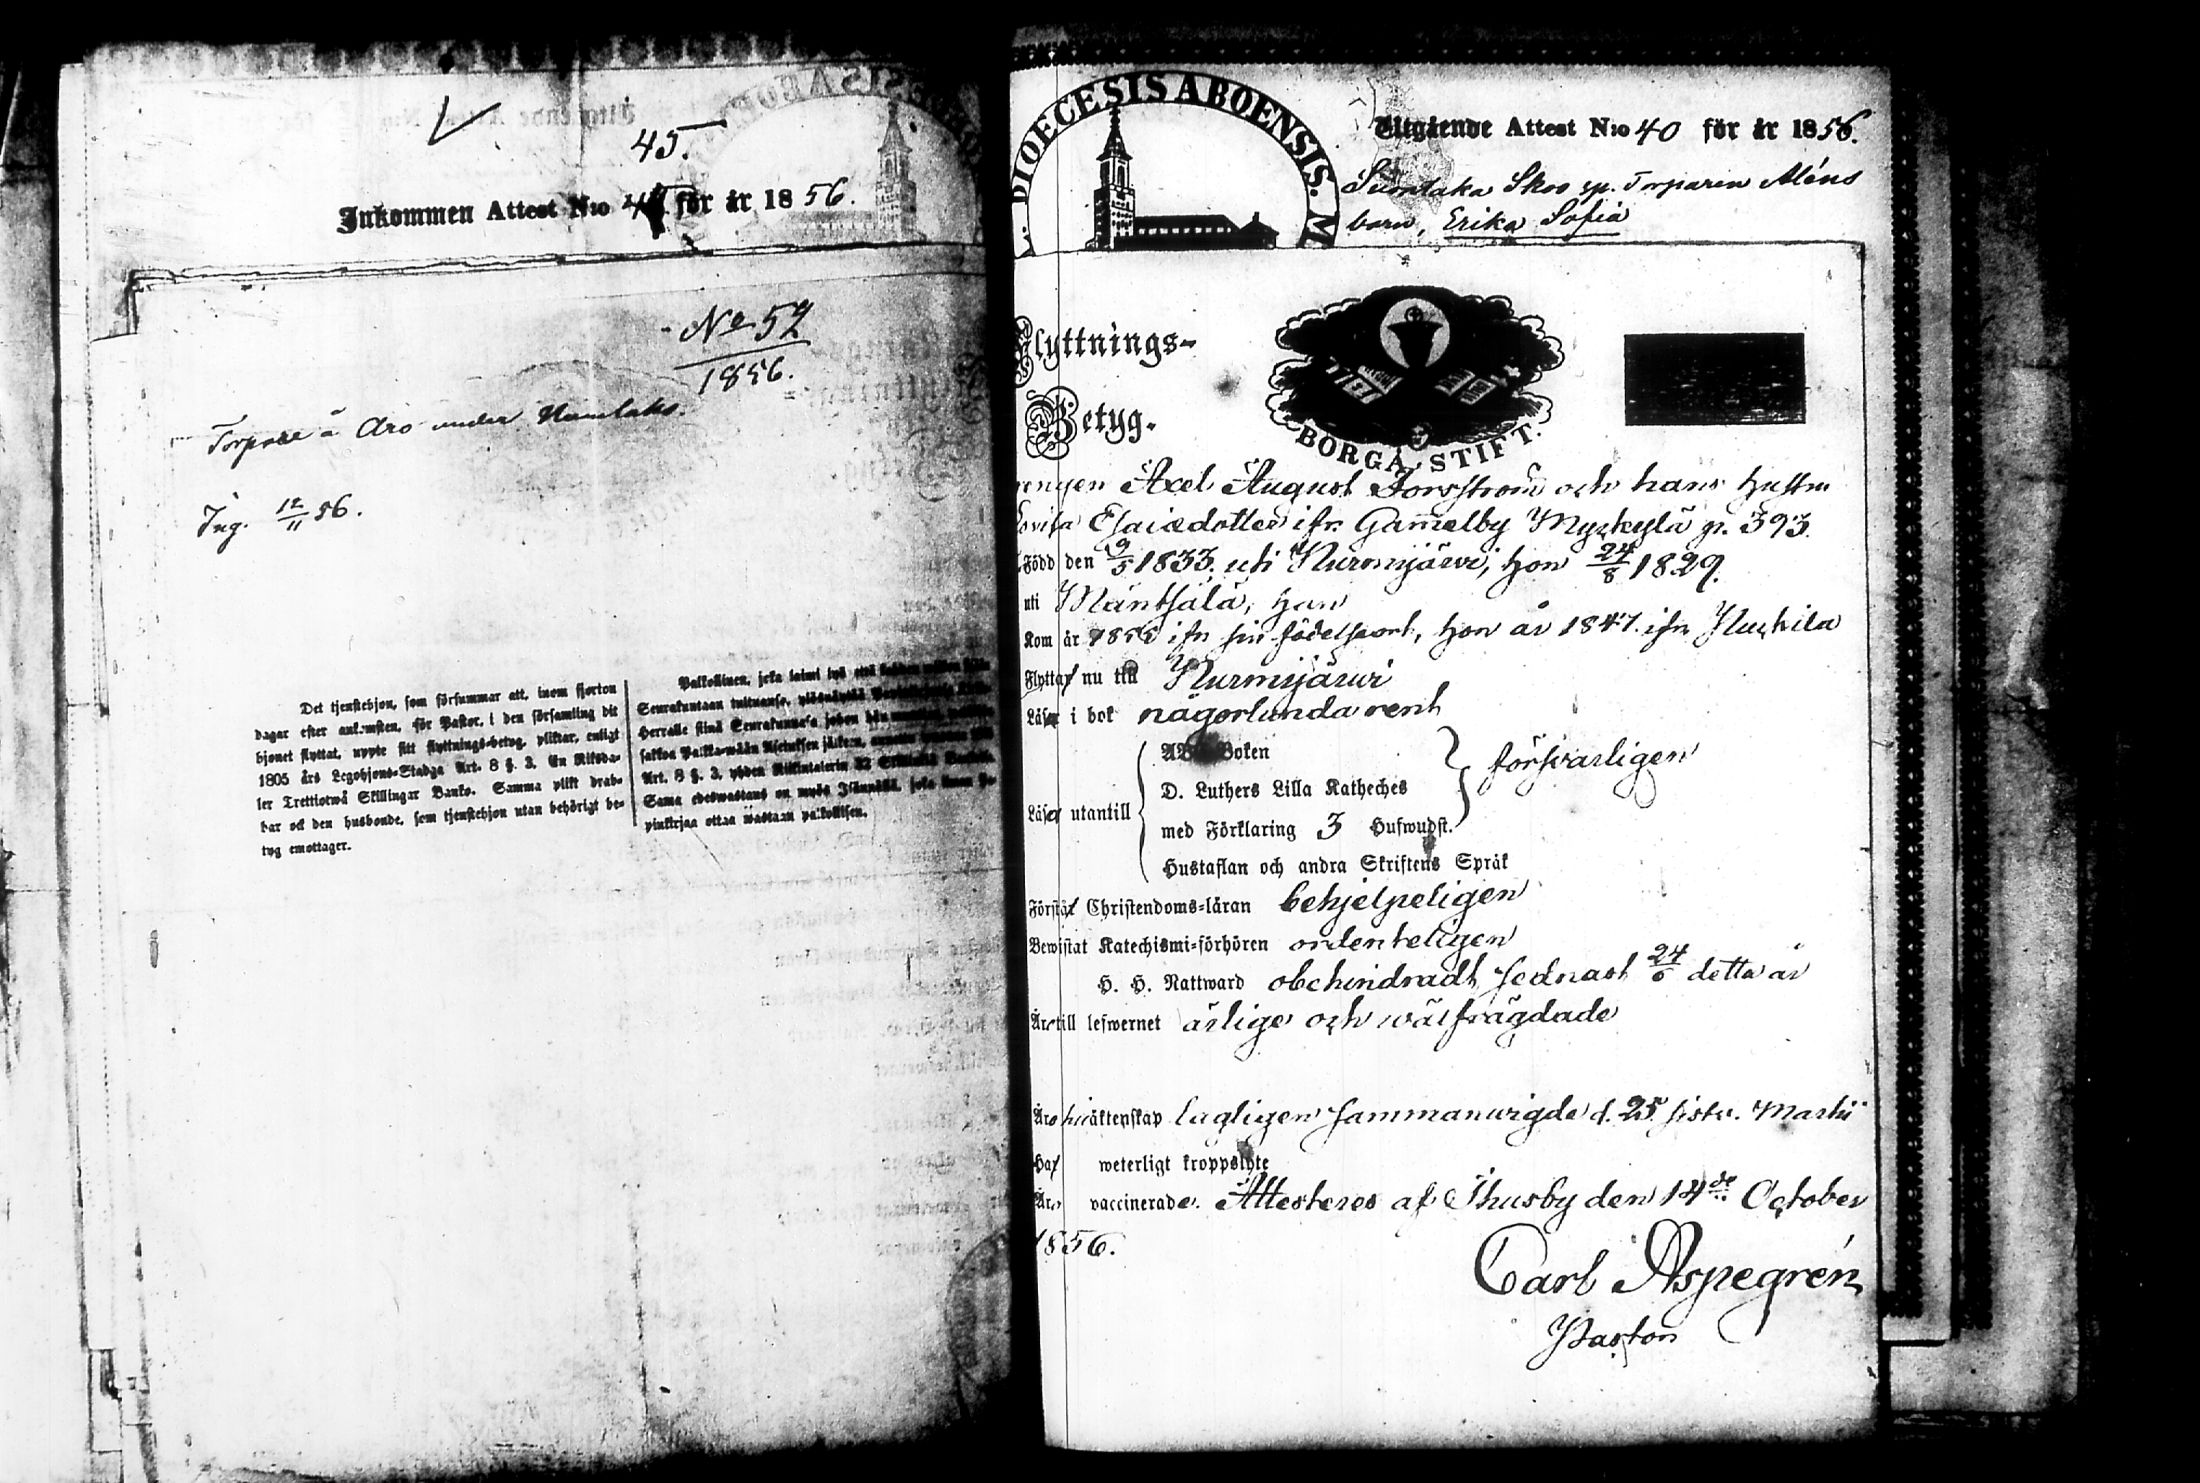 45.
Inkommen Attest N:o för år 1856.
No 59
1856.
Torpare å Aro under Numlaks.
Ing. 12/11 56.
Det tjenstehjon, som försummar att, inom fjorton
dagar efter ankomsten, för Pastor, i den församling dit
hjonet flyttat, uppte sitt flyttnings-betyg, pliktar, enligt
1805 års Legohjons-Stadga Art. 8 §. 3. En Riksda-
ler Trettiotwå Skillingar Banko. Samma plikt drab-
bar ock den husbonde, som tjenstehjon utan behörigt be-
tyg emottager.
Palkollinen, joka laimi lyö että
Seurakuntaan tultuansa,
Herralle siinä Seurakunnasa johon hän
Art. 8 §. 3, yhden Riksintalerin 32 Skillinkiä
Sama edeswastaus on myös Isännällä, joka ilman
pinkirjaa ottaa wastaan palkollisen.
DIOECESIS ABOENSIS. M
Utgående Attest N:o 40 för år 1856.
Skos sp. Torparen Aléns
barn, Erika Sofia
Flyttnings-
Betyg.
BORGÅ STIFT.
Axel August Forsström och hans hustru
Lovisa Esaiædotter ifrn Gammelby Myrkylä p. 393.
Född den 9/5 1833. uti Nurmijärvi, hon 24/8 1829.
uti Mäntsälä, han
Kom år 1855 ifn sin födelseort, hon år 1847. ifn
Flyttar nu till Nurmijärwi
Läser i bok någorlunda rent
ABC-Boken
D. Luthers Lilla Katheches
försvarligen
Läser utantill
med Förklaring 3 Hufwudst.
Hustaflan och andra Skriftens Språk
Förstår Christendoms-läran behjelpeligen
Bewistat Katechismi-förhören ordenteligen
H. H. Nattward obehindradt, sednast 24/6 detta år
Äro till lefwernet ärlige och wälfrägdade
Äro äktenskap lagligen sammanwigde d. 25 sistl. Martii
Har weterligt kroppslyte
Äro vaccinerade. Attesteras af Thusby den 14de October
1856.
Carl Aspegrén
Pastor